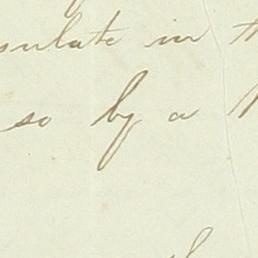 sulate in th
so by a